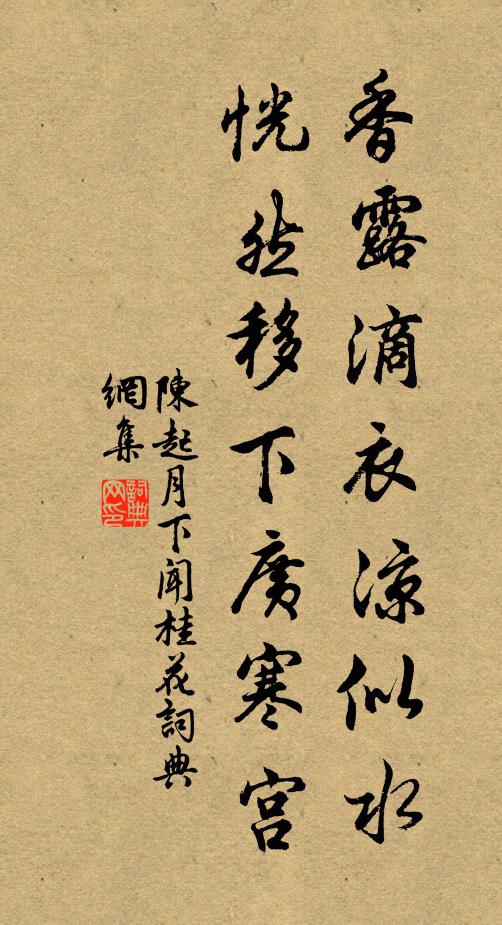 香露滴衣凉似水
恍然移下廣寒宫
陳起月下聞桂花詞典
網集
詞典
网印